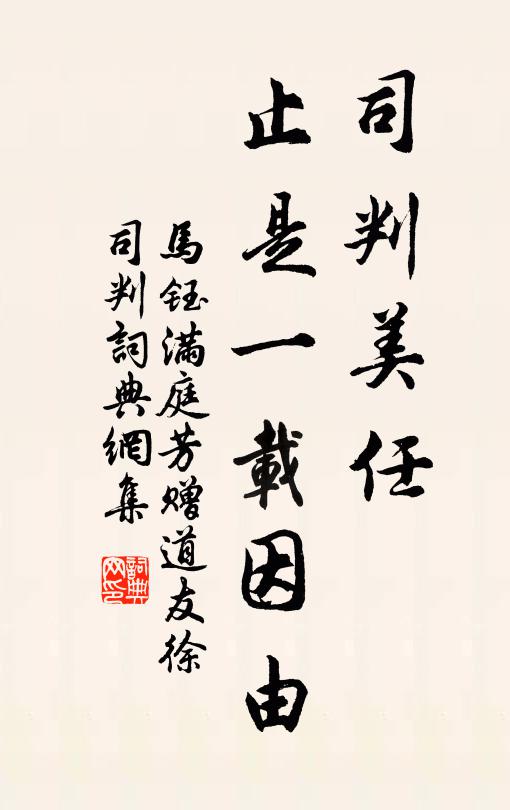 司判美任
止是一載因由
馬鈺滿庭芳贈道友徐
司判詞典網集
詞典网印